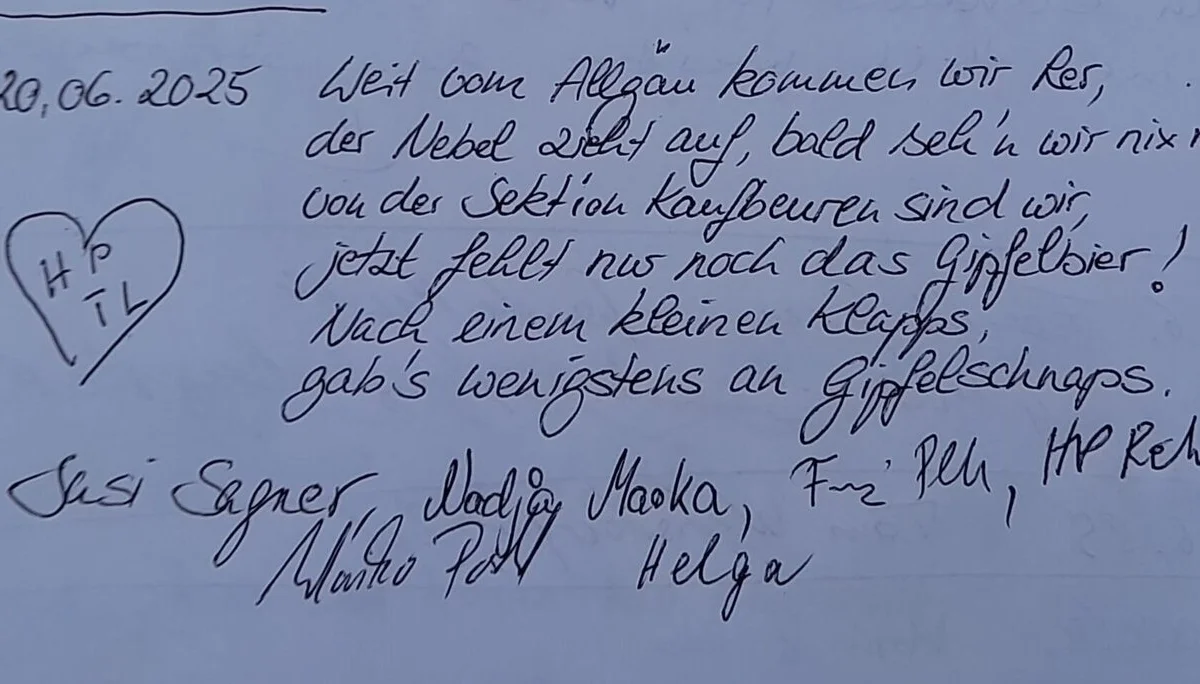 20.06.2025 Weit vom Allgäu kommen wir her,
der Nebel zieht auf, bald seh'n wir nix
von der Sektion Kaufbeuren sind wir,
jetzt fehlt nur noch das Gipfelbier!
H P
T L
Nach einem kleinen Klapps,
gab's wenigstens an Gipfelschnaps.
Susi Sagner, Nadja Maoka, HP
Helga